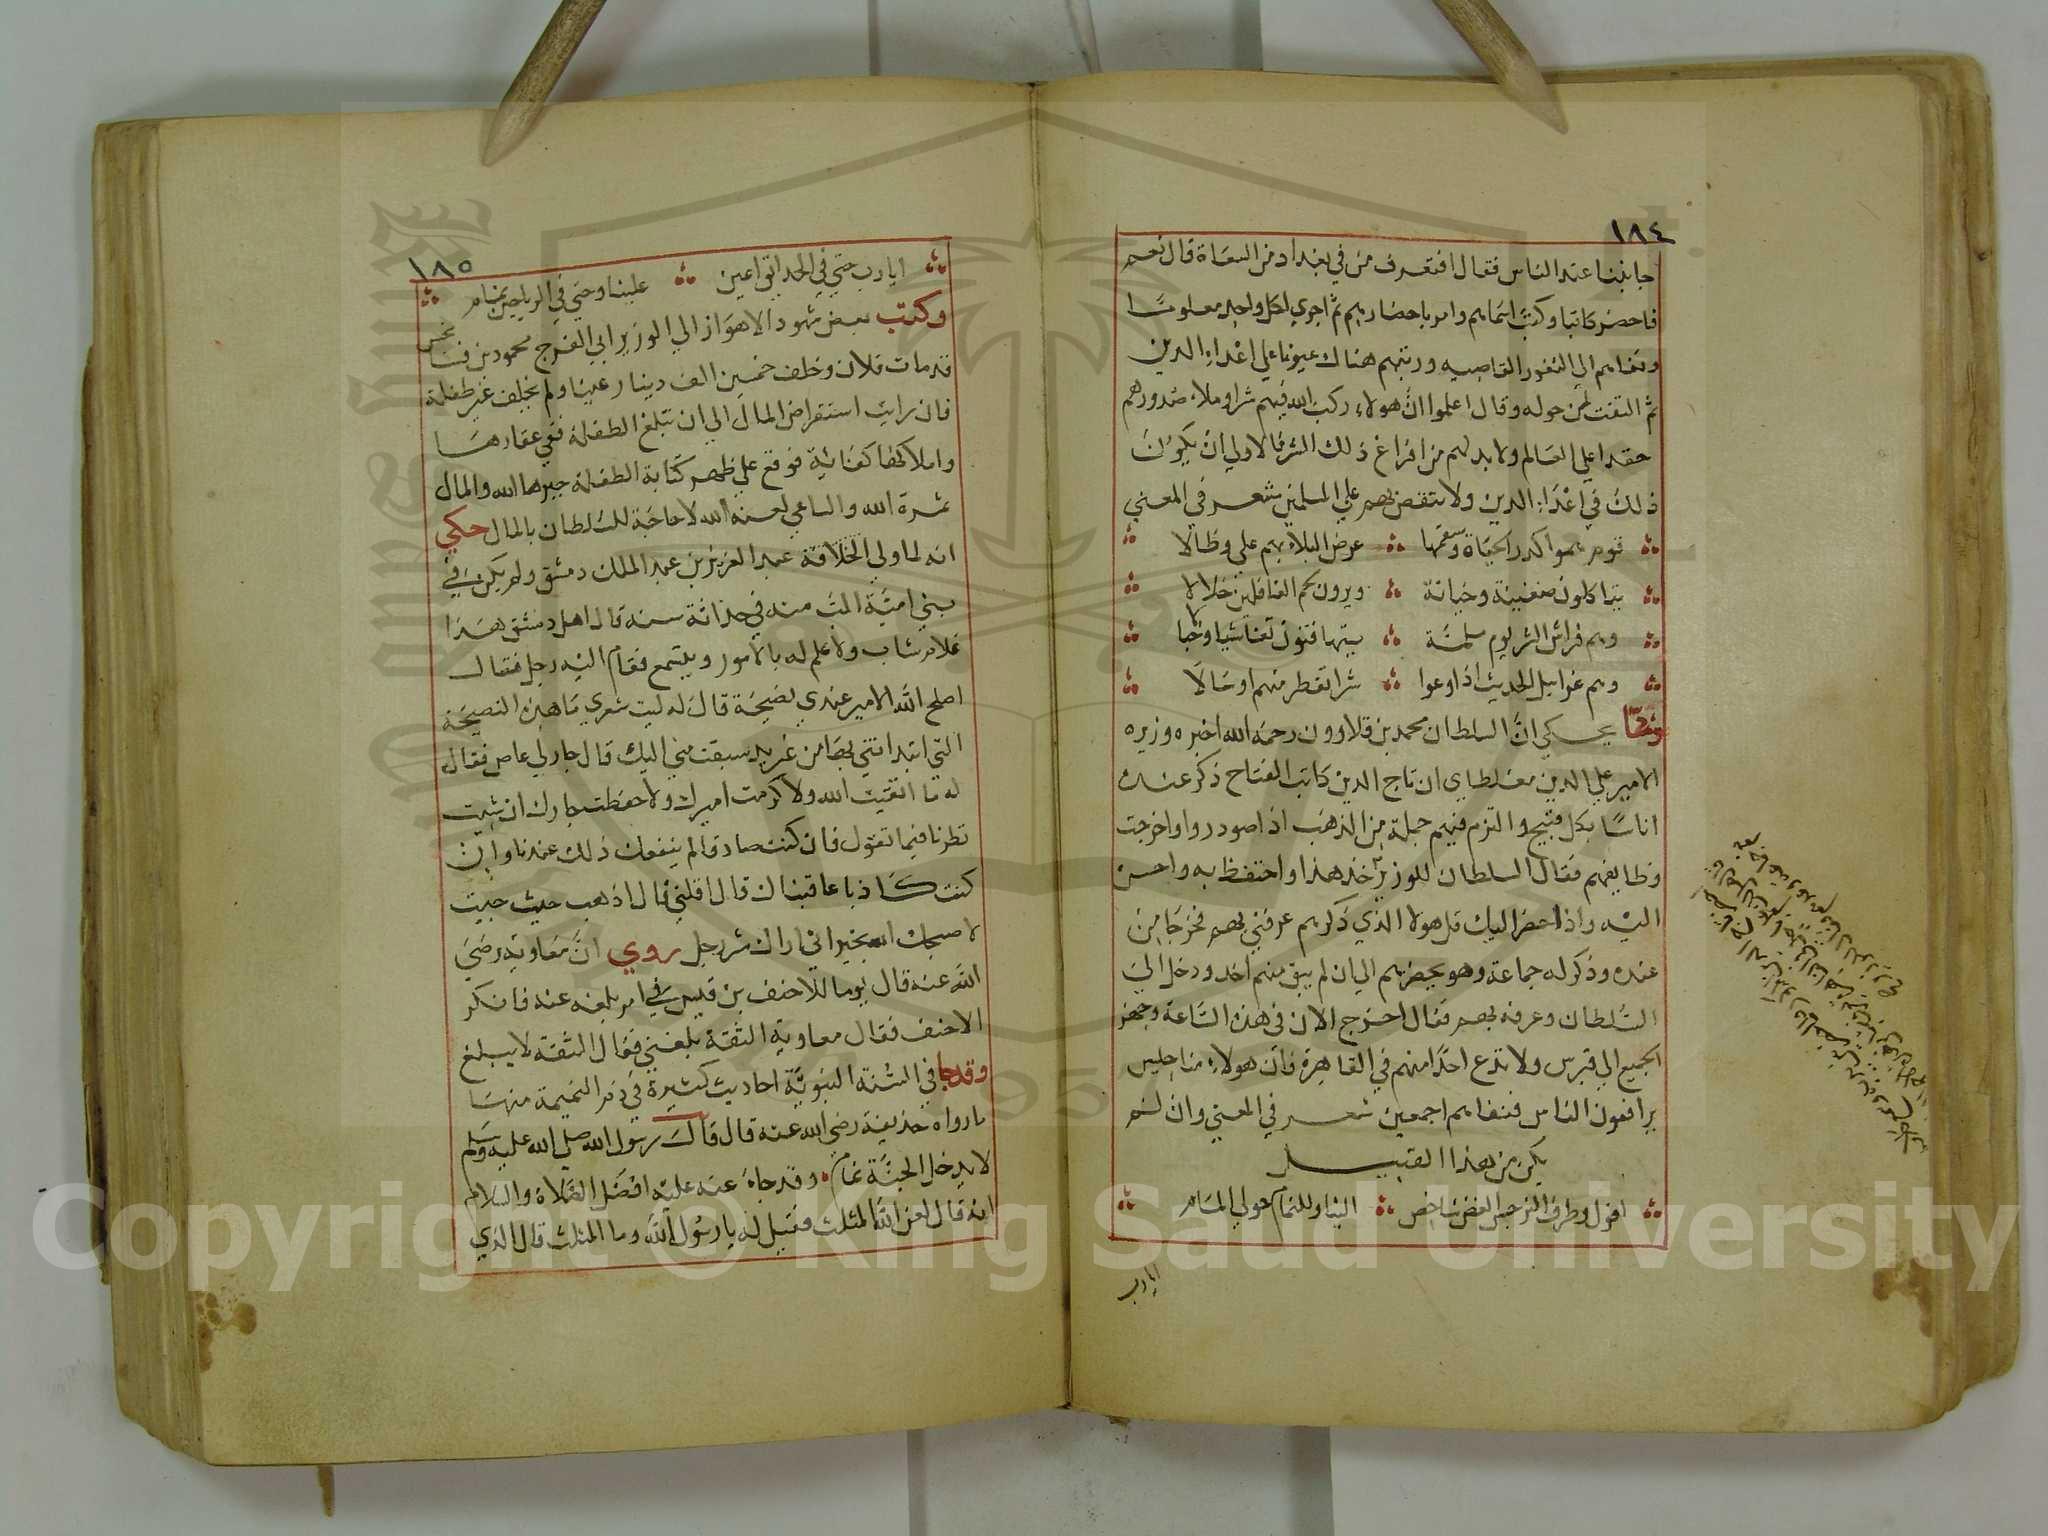 ١٨٤
جانبنا عند الناس فقال افتعرف من في بغداد من السعاة قال نعم
فاحضر كاتبا وكتب اسمايهم وامر باحضارهم ثم اجري لكل واحد معلوما
ونفاهم الي الثغور القاصيه ورتبهم هناك عيونا علي اعداء الدين
ثم التفت لمن حوله وقال اعلموا ان هولاء ركب الله فيهم شرا وملاء صدورهم
حقدا علي العالم ولا بد لهم من افراغ ذلك الشر فالاولي ان يكون
ذلك في اعداء الدين ولا ننغص بهم علي المسلمين شعر في المعني
قوم هموا كدر الحياة وسقمها عرض البلاء بهم علي وطالا
يتاكلون ضغينة وخيانة ويرون لحم الغافلين حلالا
وهم فراش الشر يوم ملمة
وهم غرابيل الحديث اذا وعوا شرا تقطر منهم اوسالا
وممّا يحكي انّ السلطان محمد بن قلاوون رحمه الله اخبره وزيره
الامير علي الدين مغلطاي ان تاج الدين كاتب الفتاح ذكر عنده
اناسا بكل قبيح والتزم فيهم جملة من الذهب اذا صودروا واخرجت
وظايفهم فقال السلطان للوزير خذ هذا واحتفظ به واحسن
اليه واذا حضر اليك قل هولا الذي ذكرهم عرفني بهم فخرجا من
عنده وذكر له جماعة وهو يحضرهم الي ان لم يبق منهم احد ودخل الي
السلطان وعرفه بهم فقال اخرج الان في هذه الساعة وجهز
الجميع الي قبرس ولا تدع احدا منهم في القاهرة فان هولاء مناحيس
يرافعون الناس فنفاهم اجمعين شعر في المعني وان لم
يكن من هذا القبيل
اقول وطرف النرجس الغض شاخص الينا وللنمام حولي المام
ايارب
١٨٥
ايارب حتي في الحدايق اعين علينا وحتي في الرياحين نمام
وكتب بعض شهود الاهواز الي الوزير ابي الفرج محمود بن فسانجس
قد مات فلان وخلف خمسين الف دينار عينا ولم يخلف غير طفلة
فان رايت استقراض المال الي ان تبلغ الطفلة ففي عقارها
واملاكها كفاية فوقع علي ظهر كتابه الطفلة جبرها الله والمال
ثمرة الله والساعي لعنه الله لا حاجة للسلطان بالمال حكي
انه لما ولي الخلافة عبد العزيز بن عبد الملك دمشق ولم يكن في
بني امية الب منه في حداثة سنه قال اهل دمشق هذا
غلام شاب ولا علم له بالامور ويستمع فقام اليه رجل فقال
اصلح الله الامير عندي نصيحة قال له ليت شعري ما هذه النصيحة
التي ابتداتني بها من غير يد سبقت مني اليك قال جار لي عاص فقال
له ما اتقيت الله ولا اكرمت اميرك ولا حفظت جارك ان شيت
نظرنا فيما تقول فان كنت صادقا لم ينفعك ذلك عندنا وان
كنت كاذبا عاقبناك قال اقلني قال اذهب حيث جيت
لا صحبك الله بخير اني اراك شر رجل روي ان معاوية رضي
الله عنه قال يوما للاحنف بن قيس في امر بلغه عنه فانكر
الاحنف فقال معاوية الثقة بلغني فقال الثقة لا يبلغ
وقد جا في السنة النبوية احاديث كثيرة في ذم النميمة منها
ما رواه حذيفة رضي الله عنه قال قال رسول الله صلي الله عليه وسلم
لا يدخل الجنة نمام وقد جاء عنه عليه افضل الصلاة والسلام
انه قال لعن الله المثلث فقيل له يا رسول الله وما المثلث قال الذي
Copyright © King Saud University